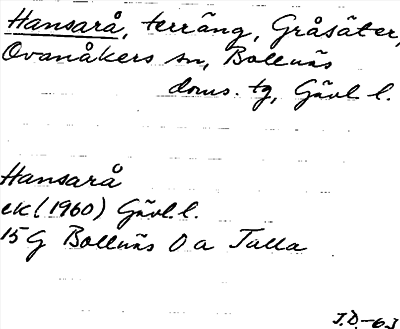 Hansarå, terräng, Gråsäter,
Ovanåkers sn, Bollnäs
doms. tg, Gävl l.
Hansarå
ek (1960) Gävl. l.
15G Bollnäs 0 a Talla
J.D.-63